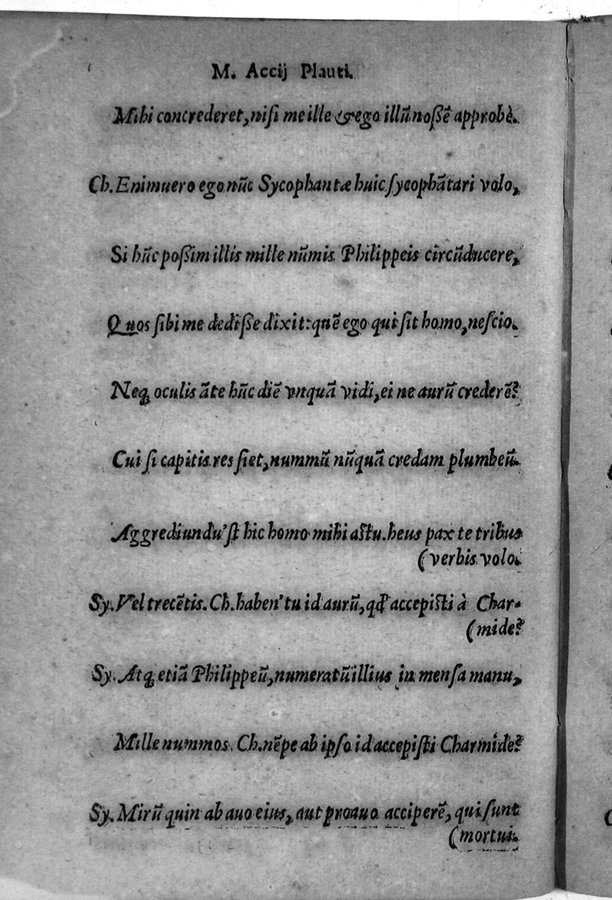 M. Accij Plauti.
Mihi concrederet, nisi me ille & ego illũ noßẽ approbè.
Ch. Enimuero ego nũc Sycophantæ huic ſycophãtari volo,
Si hũc poßim illis mille nũmis Philippeis circũducere,
Quos ſibi me dediße dixit: quẽ ego qui ſit homo, neſcio.
Neq; oculis ãte hũc diẽ vnquã vidi, ei ne aurũ crederẽ?
Cui ſi capitis res ſiet, nummũ nũquã credam plumbeũ.
Aggrediundu'ſt hic homo mihi aſtu. heus pax te tribus
(verbis volo.
Sy. Vel trecẽtis. Ch. haben' tu id aurũ, qđ accepiſti à Char-
(mide?
Sy. Atq; etiã Philippeũ, numeratũ illius in menſa manu,
Mille nummos. Ch. nẽpe ab ipſo id accepiſti Charmide?
Sy. Mirũ quin ab auo eius, aut proauo acciperẽ, qui ſunt
(mortui.